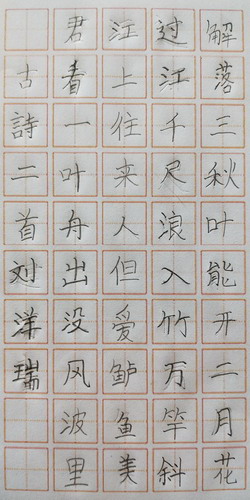 解落三秋叶能开二月花
过江千尺浪入竹万竿斜
江上住来人但爱鲈鱼美
君看一叶舟出没风波里
古詩二首刘洋瑞